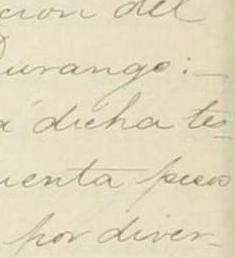 ción del
Durango:—
á dicha tes
uenta pesos
por diver-